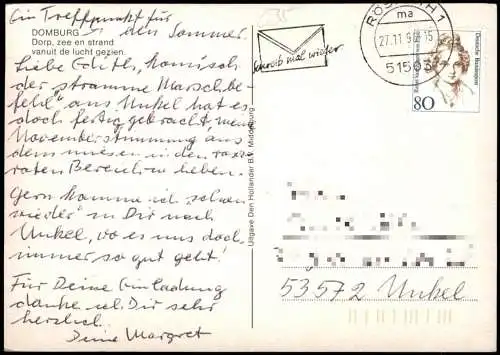 Ein Treffpunkt für
den Sommer.
DOMBURG
Dorp, zee en strand
vanuit de lucht gezien.
Liebe Edith, komisch
der stramme Marschbe-
fehl" aus Unkel hat es
doch fertig gebracht, mein
Novemberstimmung aus
dem miesen in den
raten Bereich zu heben.
Gern komme ich "schon
wieder" zu Dir nach
Unkel, wo es uns doch
immer so gut geht!
Für Deine Einladung
danke ich Dir sehr
herzlich.
Deine Margret
Uitgave Den Hollander B.V. Middelburg
Schreib mal wieder
1
ma
27.11.9
-15
5150
Deutsche Bundespost
80
53572 Unkel